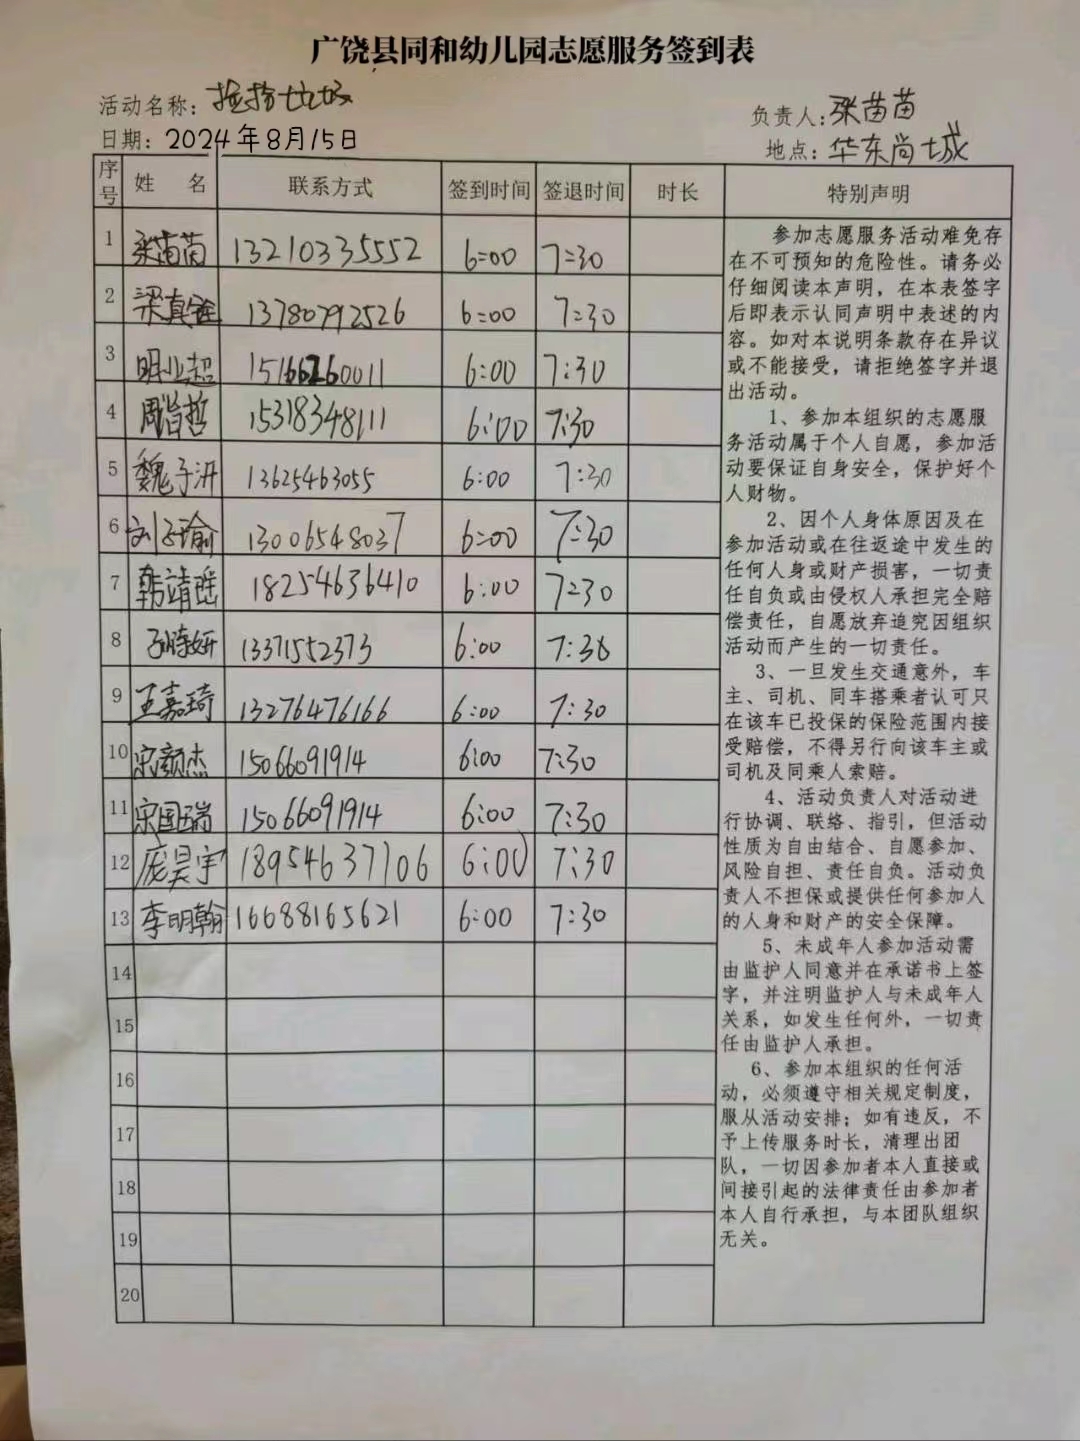 广饶县同和幼儿园志愿服务签到表
活动名称: 捡拾垃圾
负责人: 张苗苗
日期: 2024年8月15日
地点: 华东尚城
序号 姓 名 联系方式 签到时间 签退时间 时长 特别声明
1 张苗苗 13210335552 6:00 7:30
2 梁真 13780792526 6:00 7:30
3 明业超 15166260011 6:00 7:30
4 周旨哲 15318348111 6:00 7:30
5 魏子汧 13625463055 6:00 7:30
6 刘子瑜 13006548037 7:30 6:00
7 韩靖瑶 18254636410 6:00 7:30
8 孙诗妍 13371552373 6:00 7:30
9 王嘉琦 13276476166 6:00 7:30
10 宋颜杰 15066091914 6:00 7:30
11 宋国瑞 15066091914 6:00 7:30
12 庞昊宇 18954637106 6:00 7:30
13 李明翰 16688165621 6:00 7:30
14
15
16
17
18
19
20
参加志愿服务活动难免存
在不可预知的危险性。请务必
仔细阅读本声明，在本表签字
后即表示认同声明中表述的内
容。如对本说明条款存在异议
或不能接受，请拒绝签字并退
出活动。
1、参加本组织的志愿服
务活动属于个人自愿，参加活
动要保证自身安全，保护好个
人财物。
2、因个人身体原因及在
参加活动或在往返途中发生的
任何人身或财产损害，一切责
任自负或由侵权人承担完全赔
偿责任，自愿放弃追究因组织
活动而产生的一切责任。
3、一旦发生交通意外，车
主、司机、同车搭乘者认可只
在该车已投保的保险范围内接
受赔偿，不得另行向该车主或
司机及同乘人索赔。
4、活动负责人对活动进
行协调、联络、指引，但活动
性质为自由结合、自愿参加、
风险自担、责任自负。活动负
责人不担保或提供任何参加人
的人身和财产的安全保障。
5、未成年人参加活动需
由监护人同意并在承诺书上签
字，并注明监护人与未成年人
关系，如发生任何外，一切责
任由监护人承担。
6、参加本组织的任何活
动，必须遵守相关规定制度，
服从活动安排；如有违反，不
予上传服务时长，清理出团
队，一切因参加者本人直接或
间接引起的法律责任由参加者
本人自行承担，与本团队组织
无关。